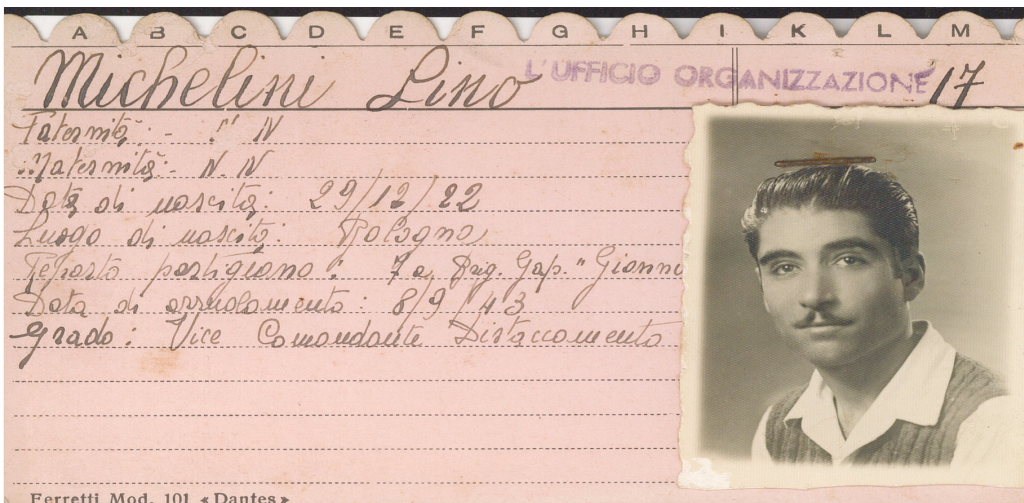 A B C D E F G H I K L M
Michelini Lino L'UFFICIO ORGANIZZAZIONE 17
Paternità: - N N
Maternità: - N N
Data di nascita: 29/12/22
Luogo di nascita: Bologna
Reparto partigiano: 7a Brig. Gap. "Gianni
Data di arruolamento: 8/9/43
Grado: Vice Comandante Distaccamento
Ferretti Mod. 101 «Dantes»